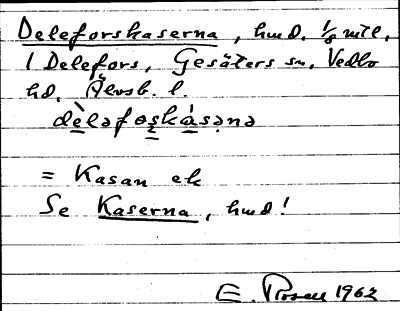 Deleforskaserna, hmd. 1/8 mtl,
1 Delefors, Gesäters sn, Vedbo
hd, Älvsb. l.
dèləfoʂkàsəɳə
= Kasan etc
Se Kaserna, hmd!
E. Rosell 1962